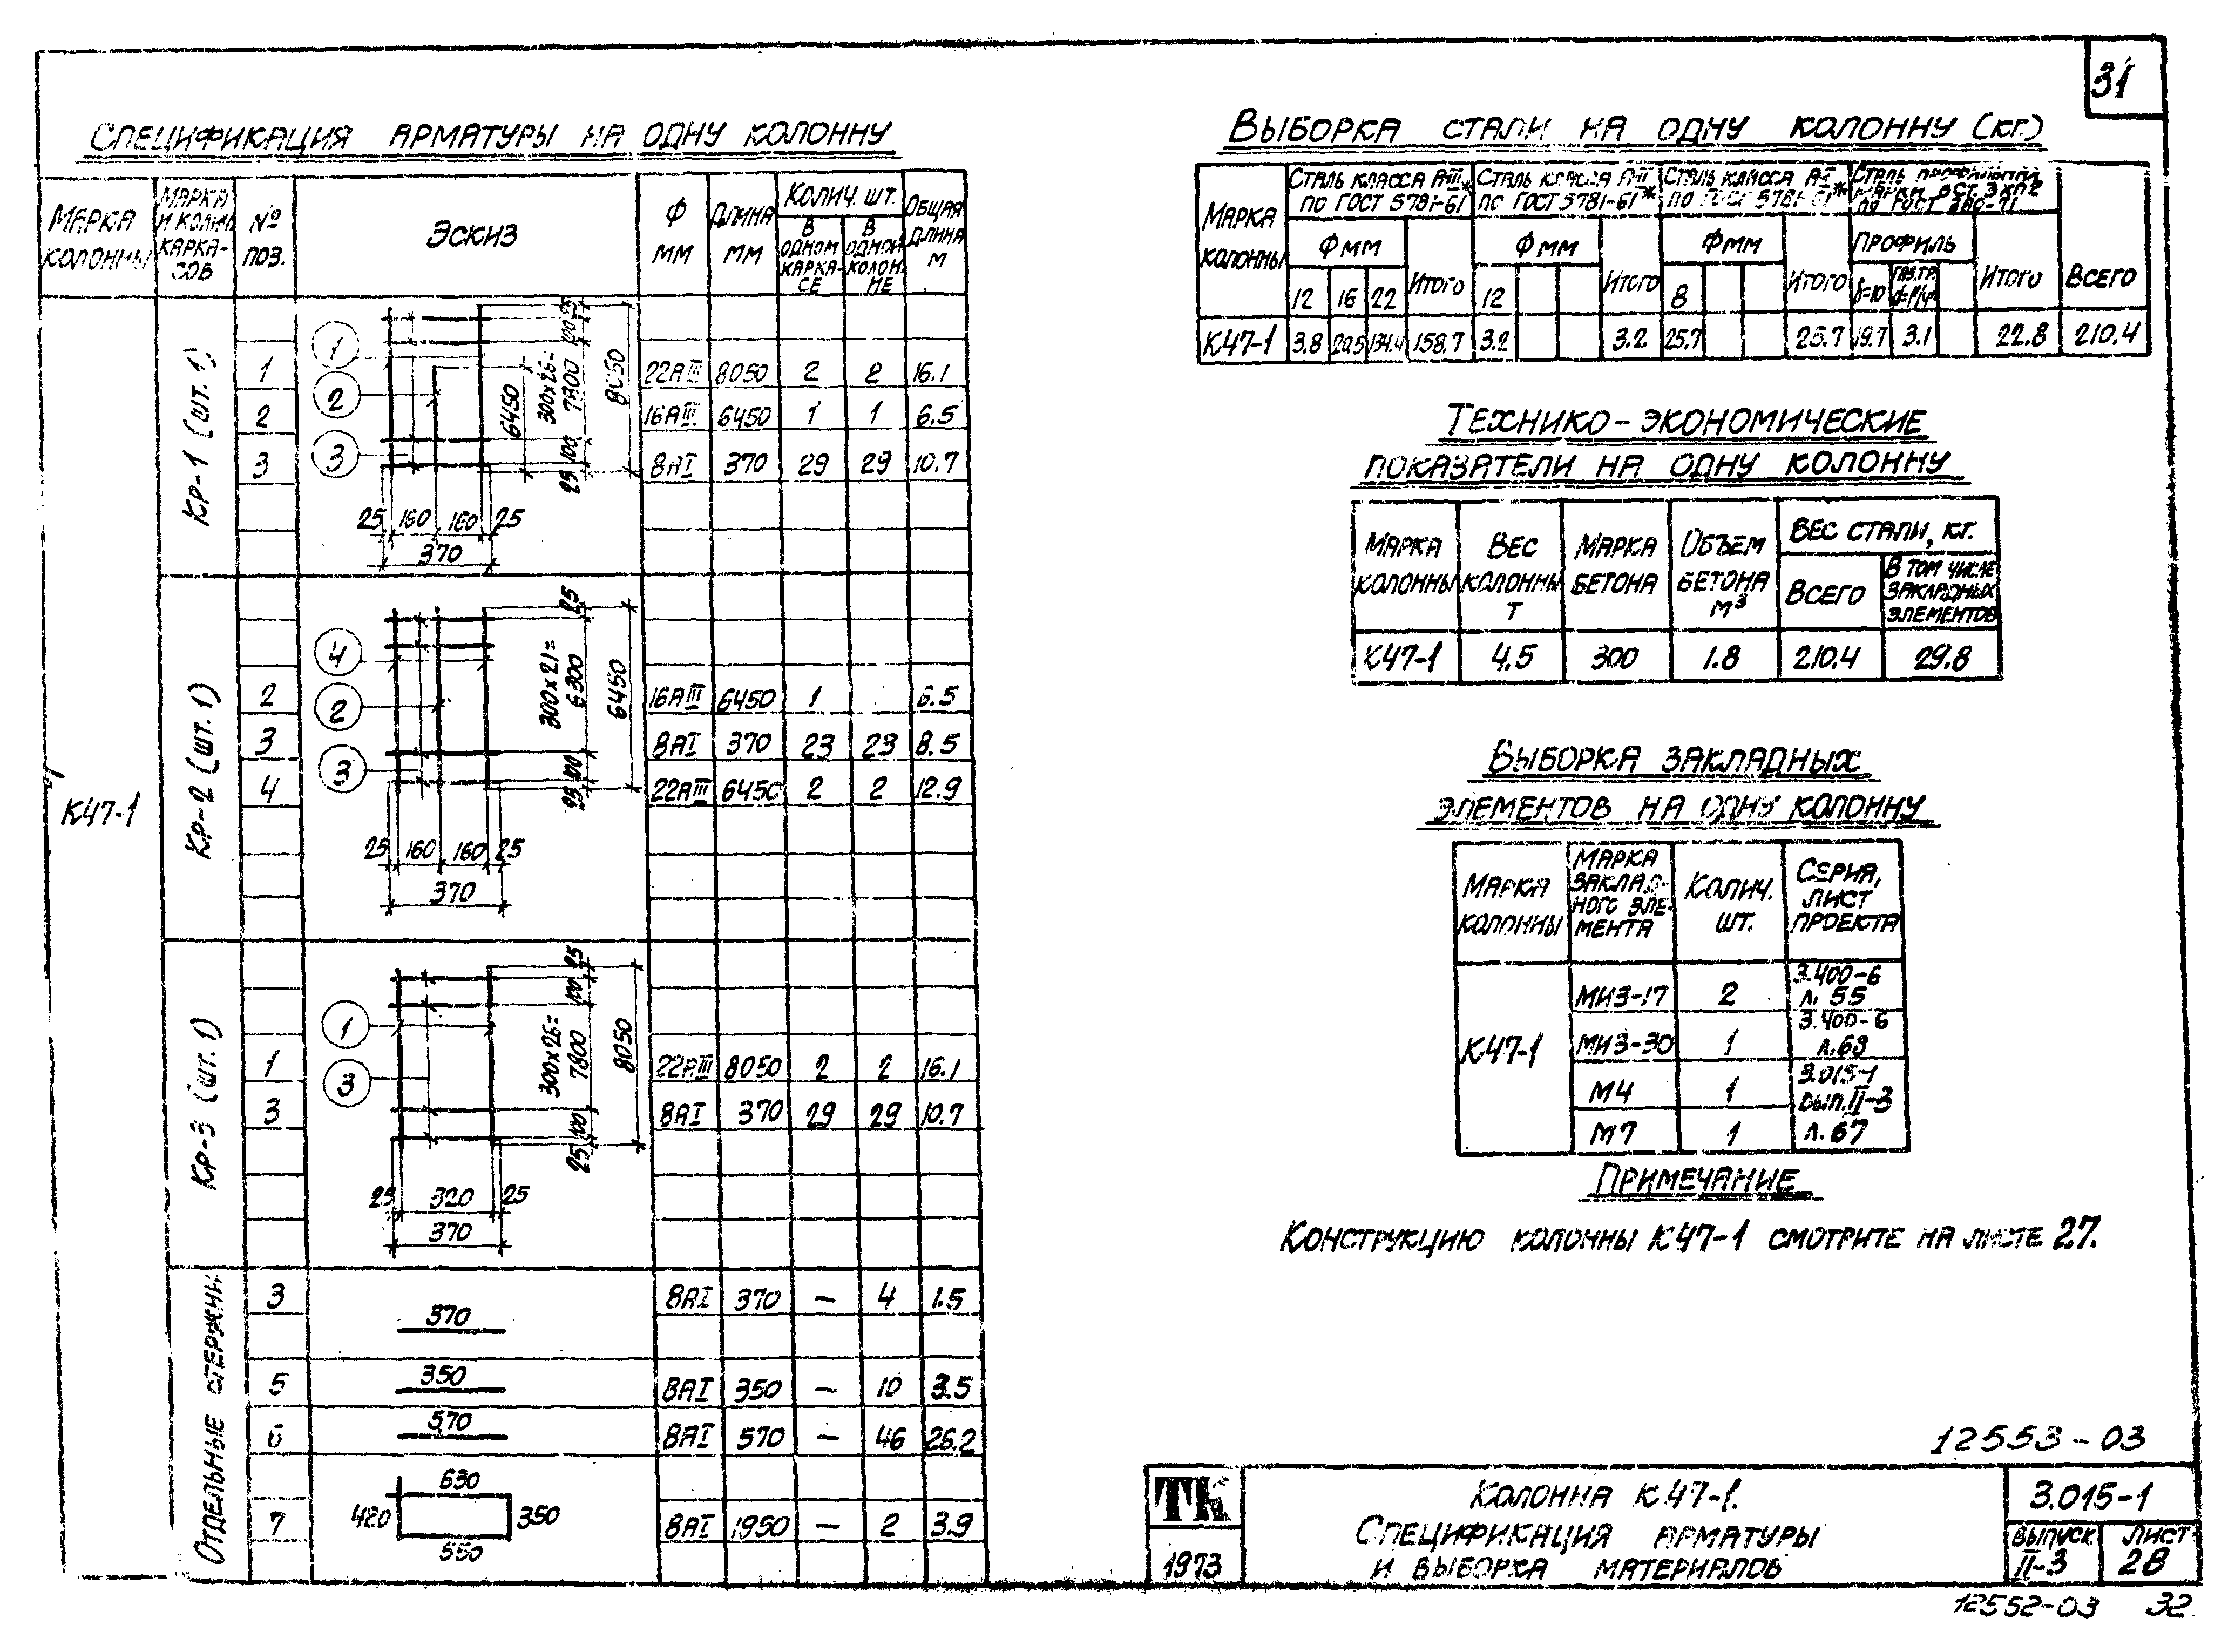 31
Спецификация арматуры на одну колонну
Марка колонны
Марка и колич. карка-сов
№ поз.
Эскиз
Ф мм
Длина мм
Колич. шт.
В одном карка-се
В одной колон-не
Общая длина м
К47-1
Кр-1 (шт. 1)
1 22АIII 8050 2 2 16.1
2 16АIII 6450 1 1 6.5
3 8АI 370 29 29 10.7
1
2
3
25 100 300х26=7800 100 25
6450
8050
25 160 160 25
370
Кр-2 (шт. 1)
2 16АIII 6450 1 6.5
3 8АI 370 23 23 8.5
4 22АIII 6450 2 2 12.9
4
2
3
25 300х21=6300 100 25
6450
25 160 160 25
370
Кр-3 (шт. 1)
1 22АIII 8050 2 2 16.1
3 8АI 370 29 29 10.7
1
3
25 100 300х26=7800 100 25
8050
25 320 25
370
Отдельные стержни
3 370 8АI 370 — 4 1.5
5 350 8АI 350 — 10 3.5
6 570 8АI 570 — 46 26.2
7 630 420 350 550 8АI 1950 — 2 3.9
Выборка стали на одну колонну (кг.)
Марка колонны
Сталь класса А-III по ГОСТ 5781-61*
Сталь класса А-II по ГОСТ 5781-61*
Сталь класса А-I по ГОСТ 5781-61*
Сталь профильная марки ВСт.3кп2 по ГОСТ 380-71
Фмм Итого Фмм Итого Фмм Итого Профиль Итого Всего
12 16 22 12 8 δ=10 Газ.тр.
К47-1 3.8 20.5 134.4 158.7 3.2 3.2 25.7 25.7 19.7 3.1 22.8 210.4
Технико-экономические
показатели на одну колонну
Марка колонны
Вес колонны т
Марка бетона
Объем бетона м³
Вес стали, кг.
Всего
В том числе закладных элементов
К47-1 4.5 300 1.8 210.4 29.8
Выборка закладных
элементов на одну колонну
Марка колонны
Марка заклад-ного эле-мента
Колич. шт.
Серия, лист проекта
К47-1
МИЗ-17 2 3.400-6 л. 55
МИЗ-30 1 3.400-6 л.69
М4 1 3.015-1
вып.II-3
М7 1 л.67
Примечание
Конструкцию колонны К47-1 смотрите на листе 27.
12553-03
ТК
1973
Колонна К47-1.
Спецификация арматуры
и выборка материалов
3.015-1
Выпуск II-3
Лист 28
12552-03 32